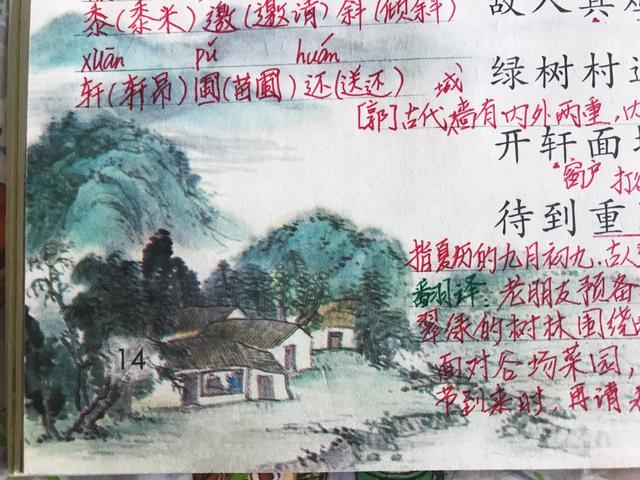 黍(黍米)邀(邀请)斜(倾斜)
xuān pǔ huán
轩(轩昂)圃(苗圃)还(送还)
故人具
绿树村
城
[郭]古代墙有内外两重,内
开轩面
窗户 打
待到重
指夏历的九月初九.古人
翻译:老朋友预备
翠绿的树林围绕
面对谷场菜园,
节到来时,再请
14